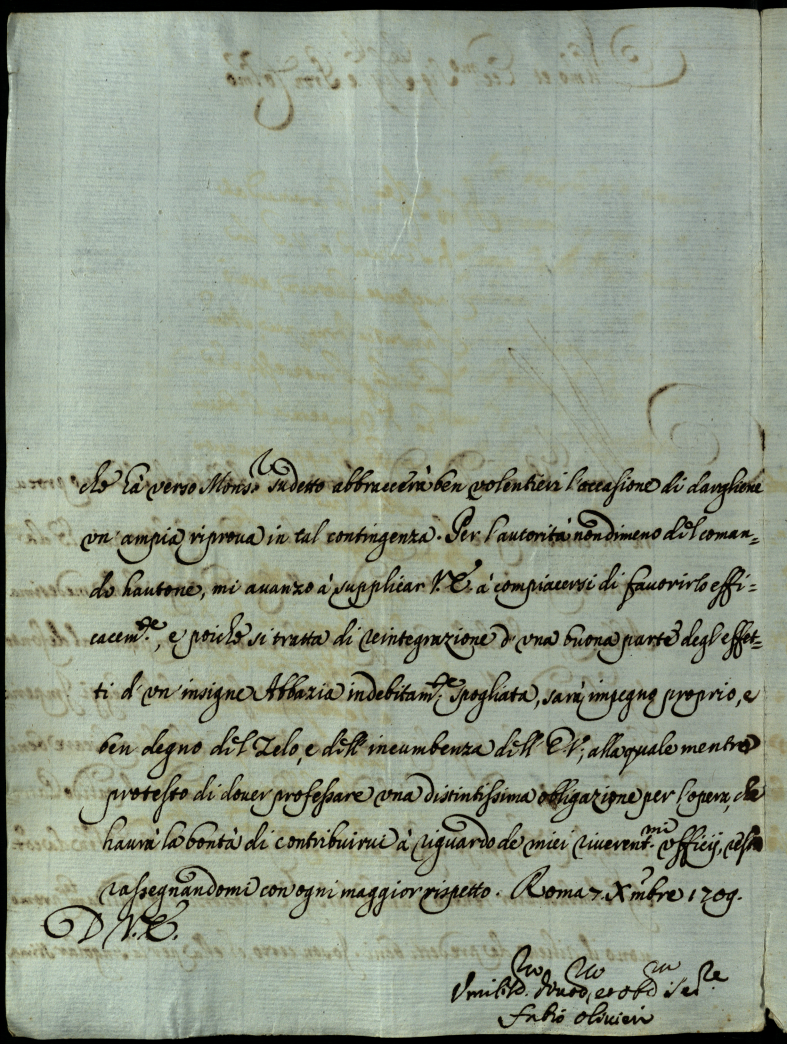 che hà verso Mons.r sudetto abbraccerà ben volentieri l'occasione di dargliene
vn' ampia riprova in tal contingenza. Per l'autorità nondimeno del coman=
do hautone, mi avanzo à supplicar V.E. à compiacersi di favorirlo effi=
cacem.te, e poiche si tratta di reintegrazione d' vna buona parte degl' effet=
ti d' vn' insigne Abbazia indebitam.te spogliata, sarà impegno proprio, e
ben degno del Zelo, e dell' incumbenza dell' E.V., alla quale mentre
protesto di dover professare vna distintissima obligazione per l'opera, che
haurà la bontà di contribuirui à riguardo de miei riverent.mi vfficij, resto
rassegnandomi con ogni maggior rispetto. Roma 7 Xmbre 1709.
D V.E.
Vmiliss.o Diuo.mo et obb.mo Ser.re
Fabio Olivieri